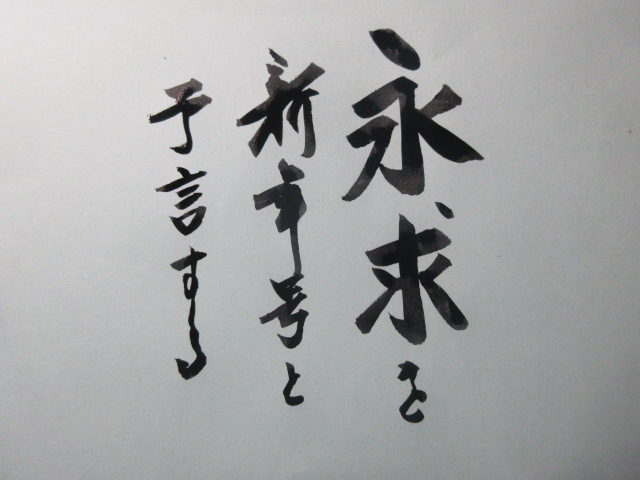 永求を
新年号と
予言する